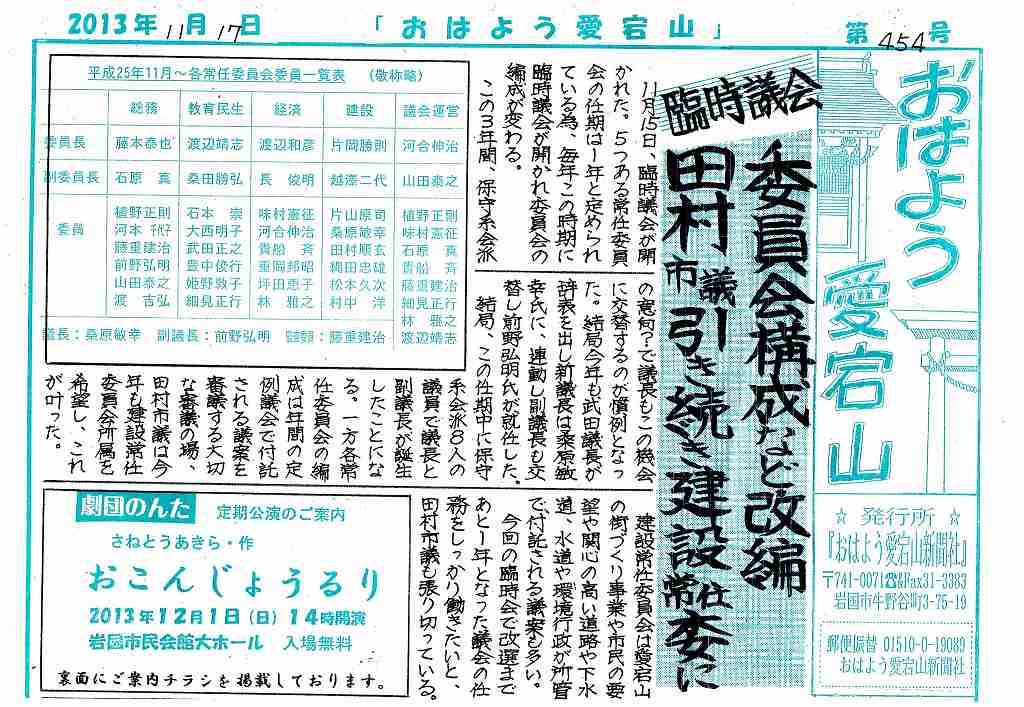 2013年11月17日 「おはよう愛宕山」 第454号
おはよう愛宕山
☆ 発行所 ☆
『おはよう愛宕山新聞社』
〒741-0071☎&Fax31-3383
岩国市牛野谷町3-75-19
郵便振替 01510-0-19089
おはよう愛宕山新聞社
臨時議会
委員会構成など改編
田村市議引き続き建設常任委に
11月15日、臨時議会が開
かれた。5つある常任委員
会の任期は1年と定められ
ている為、毎年この時期に
臨時議会が開かれ委員会の
編成が変わる。
この3年間、保守系会派
の意向?で議長もこの機会
に交替するのが慣例となっ
た。結局今年も武田議長が
辞表を出し新議長は桑原敏
幸氏に、連動し副議長も交
替し前野弘明氏が就任した。
結局、この任期中に保守
系会派8人の
議員で議長と
副議長が誕生
したことにな
る。一方各常
任委員会の編
成は年間の定
例議会で付託
される議案を
審議する大切
な審議の場、
田村市議は今
年も建設常任
委員会所属を
希望し、これ
が叶った。
建設常任委員会は愛宕山
の街づくり事業や市民の要
望や関心の高い道路や下水
道、水道や環境行政が所管
で、付託される議案も多い。
今回の臨時会で改選まで
あと1年となった議会の任
務をしっかり働きたいと、
田村市議も張り切っている。
平成25年11月~各常任委員会委員一覧表 (敬称略)
総務 教育民生 経済 建設 議会運営
委員長 藤本泰也 渡辺靖志 渡辺和彦 片岡勝則 河合伸治
副委員長 石原 真 桑田勝弘 長 俊明 越澤二代 山田泰之
委員 植野正則 石本 崇 味村憲征 片山原司 植野正則
河本千代子 大西明子 河合伸治 桑原敏幸 味村憲征
藤重建治 武田正之 貴船 斉 田村順玄 石原 真
前野弘明 豊中俊行 重岡邦昭 縄田忠雄 貴船 斉
山田泰之 姫野敦子 坪田恵子 松本久次 藤重建治
渡 吉弘 細見正行 林 雅之 村中 洋 細見正行
林 雅之
議長:桑原敏幸 副議長:前野弘明 監査委員:藤重建治 渡辺靖志
劇団のんた 定期公演のご案内
さねとうあきら・作
おこんじょうるり
2013年12月1日(日) 14時開演
岩國市民会館大ホール 入場無料
裏面にご案内チラシを掲載しております。